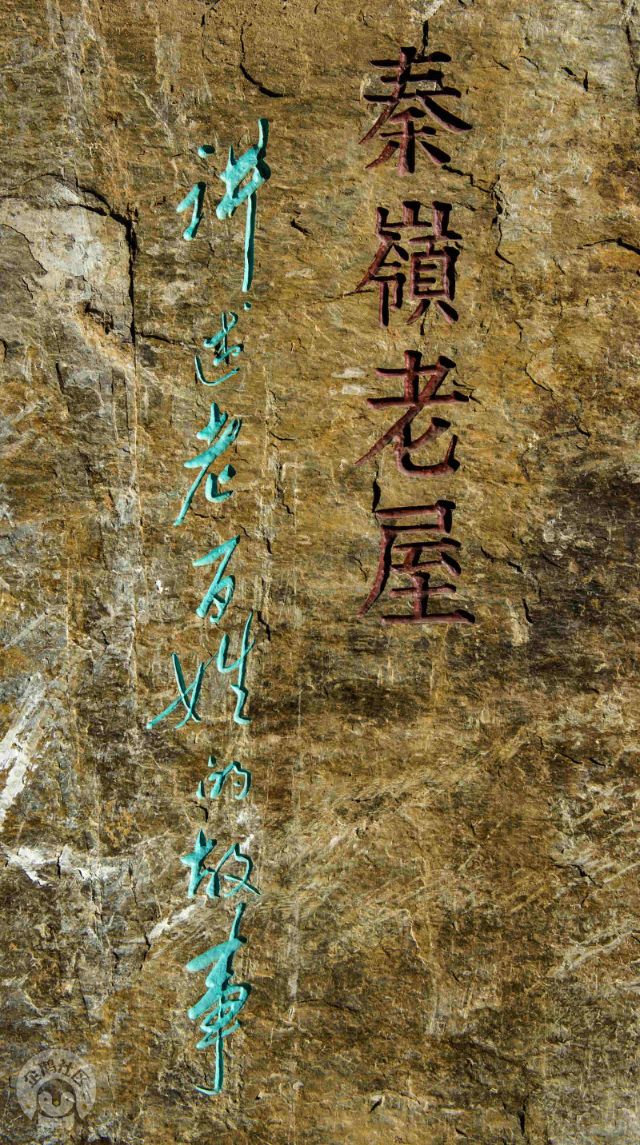 秦嶺老屋
讲述老百姓的故事